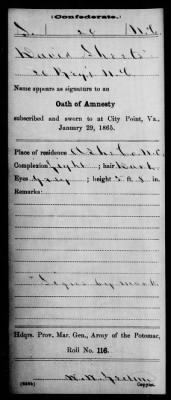 (Confederate.)
S. 26 N.C.
David Sheets
26 Reg't N.C.
Name appears as signature to an
Oath of Amnesty
subscribed and sworn to at City Point, Va.,
January 29, 1865.
Place of residence Ashe Co. N.C.
Complexion Light; hair Dark
Eyes Grey; height 5 ft. 8 in.
Remarks:
Signs by mark
Hdqrs. Prov. Mar. Gen., Army of the Potomac,
Roll No. 116.
Copyist.